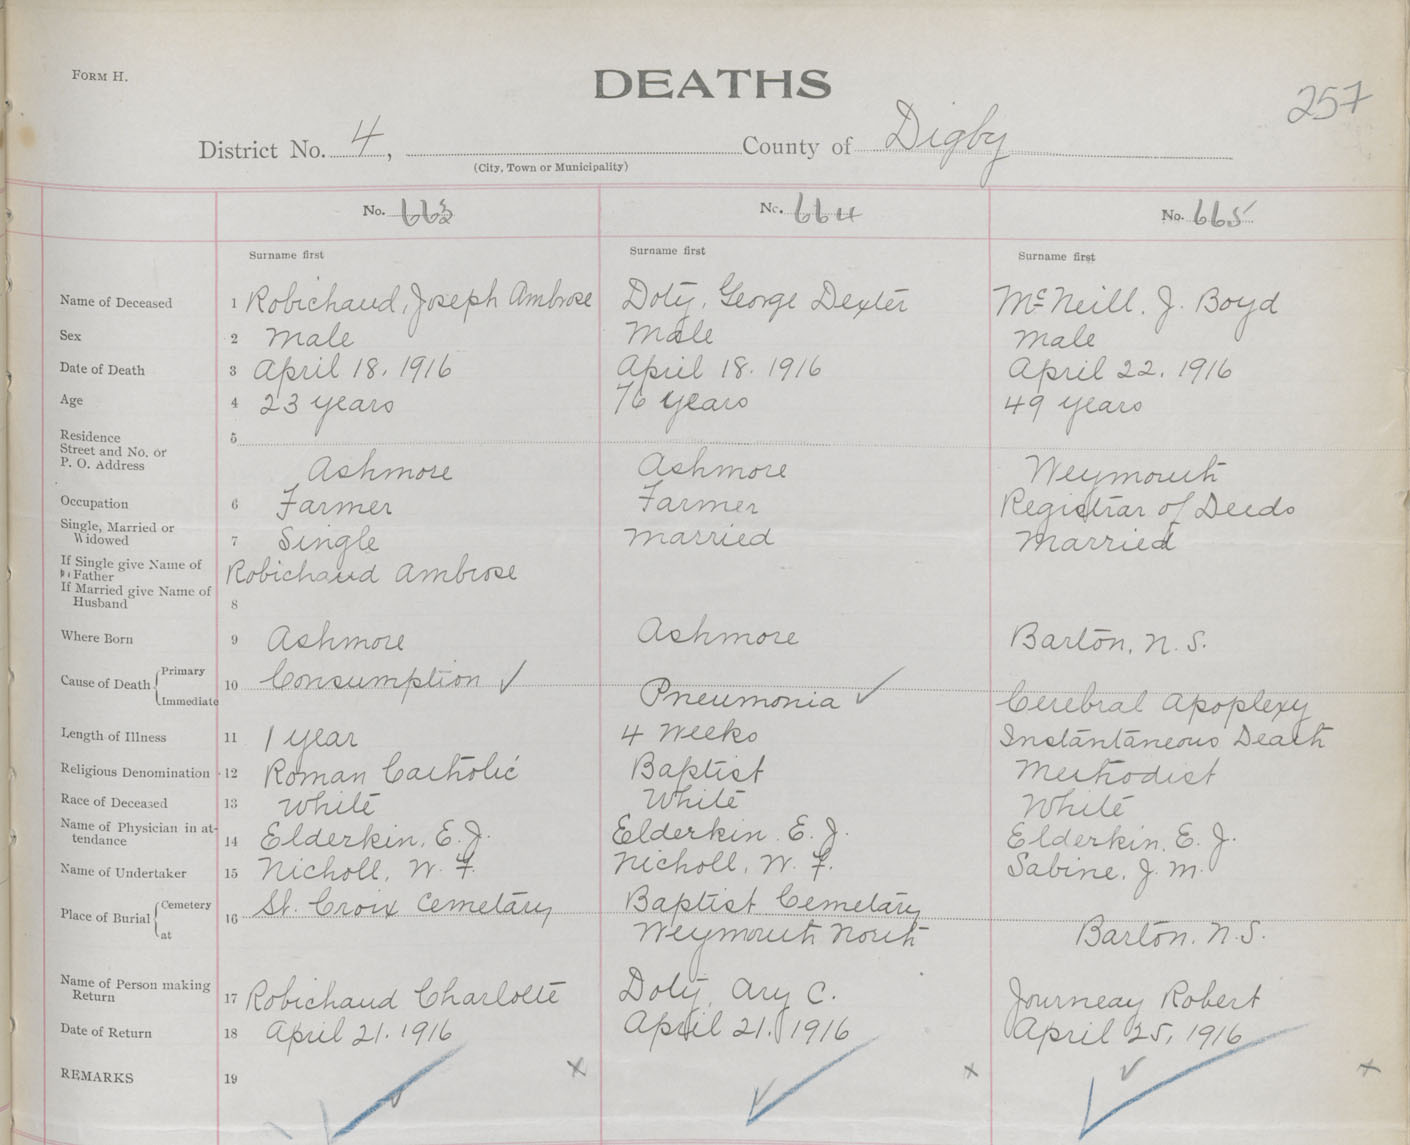 FORM H.
DEATHS
257
District No. 4, County of Digby
(City, Town or Municipality)
No. 663 No. 664 No. 665
Surname first Surname first Surname first
Name of Deceased 1 Robichaud, Joseph Ambrose Doty, George Dexter McNeill, J. Boyd
Sex 2 Male Male Male
Date of Death 3 April 18, 1916 April 18. 1916 April 22, 1916
Age 4 23 years 76 years 49 years
Residence 5
Street and No. or
P. O. Address Ashmore Ashmore Weymouth
Occupation 6 Farmer Farmer Registrar of Deeds
Single, Married or
Widowed 7 Single Married Married
If Single give Name of
Father Robichaud Ambrose
If Married give Name of
Husband 8
Where Born 9 Ashmore Ashmore Barton, N.S.
Cause of Death Primary 10 Consumption ✓
Immediate Pneumonia ✓ Cerebral Apoplexy
Length of Illness 11 1 year 4 Weeks Instantaneous Death
Religious Denomination 12 Roman Catholic Baptist Methodist
Race of Deceased 13 White White White
Name of Physician in at-
tendance 14 Elderkin, E. J. Elderkin. E. J. Elderkin, E. J.
Name of Undertaker 15 Nicholl, W. F. Nicholl, W. F. Sabine, J. M.
Place of Burial Cemetery 16 St. Croix Cemetary Baptist Cemetary
at Weymouth North Barton. N.S.
Name of Person making
Return 17 Robichaud Charlotte Doty, Ary C. Journeay Robert
Date of Return 18 April 21. 1916 April 21. 1916 April 25, 1916
REMARKS 19 ✓ x ✓ x ✓ x